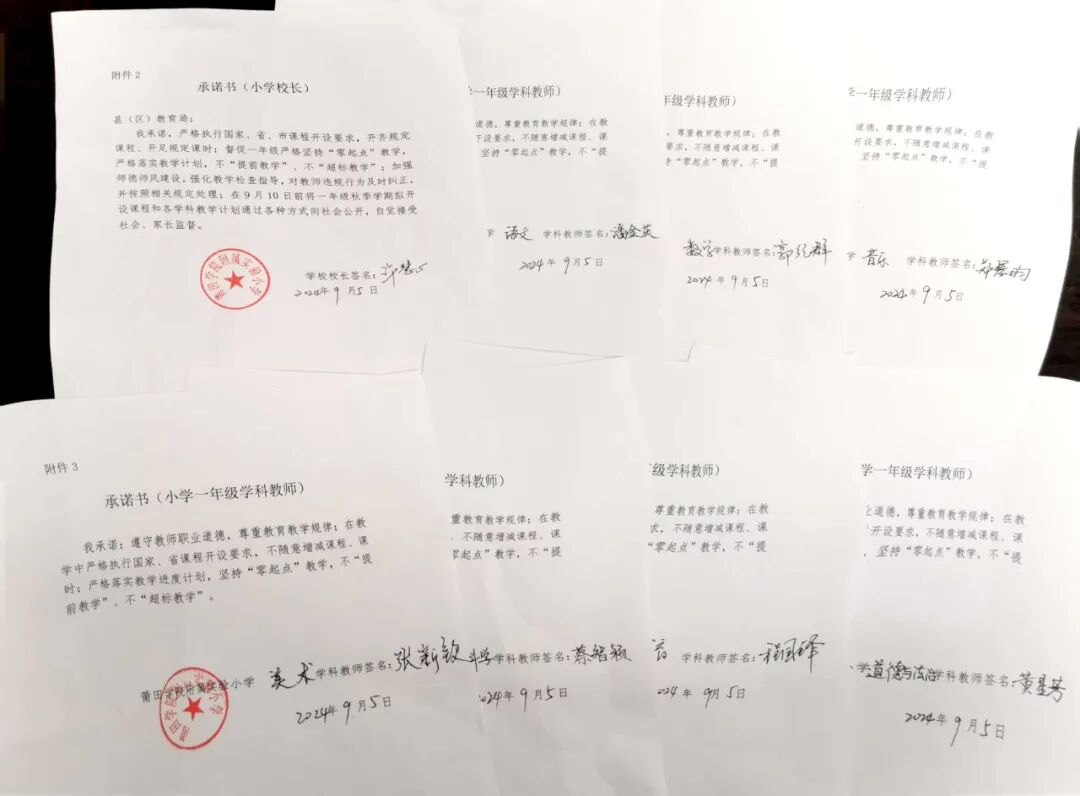 附件2
承诺书（小学校长）
县（区）教育局：
我承诺，严格执行国家、省、市课程开设要求，开齐规定
课程、开足规定课时；督促一年级严格坚持“零起点”教学，
严格落实教学计划，不“提前教学”、不“超标教学”；加强
师德师风建设，强化教学检查指导，对教师违规行为及时纠正，
并按照相关规定处理；在9月10日前将一年级秋季学期拟开
设课程和各学科教学计划通过各种方式向社会公开，自觉接受
社会、家长监督。
莆田学院附属实验小学
学校校长签名：
2024年9月5日
一年级学科教师）
道德，尊重教育教学规律；在教
开设要求，不随意增减课程、课
坚持“零起点”教学，不“提
语文 学科教师签名：潘金英
2024年9月5日
年级学科教师）
，尊重教育教学规律；在教
要求，不随意增减课程、课
“零起点”教学，不“提
数学学科教师签名：郭
2024年9月5日
一年级学科教师）
道德，尊重教育教学规律；在教
开设要求，不随意增减课程、课
坚持“零起点”教学，不“提
学 音乐 学科教师签名：
2024年9月5日
附件3
承诺书（小学一年级学科教师）
我承诺：遵守教师职业道德，尊重教育教学规律；在教
学中严格执行国家、省课程开设要求，不随意增减课程、课
时；严格落实教学进度计划，坚持“零起点”教学，不“提
前教学”、不“超标教学”。
莆田学院附属实验小学 美术学科教师签名：张新毅
莆田学院附属实验小学
2024年9月5日
学科教师）
重教育教学规律；在教
、不随意增减课程、课
零起点”教学，不“提
科学学科教师签名：蔡智颖
2024年9月5日
级学科教师）
尊重教育教学规律；在教
求，不随意增减课程、课
“零起点”教学，不“提
学科教师签名：程国泽
2024年9月5日
学一年级学科教师）
道德，尊重教育教学规律；在教
开设要求，不随意增减课程、课
，坚持“零起点”教学，不“提
学道德与法治学科教师签名：黄星芳
2024年9月5日